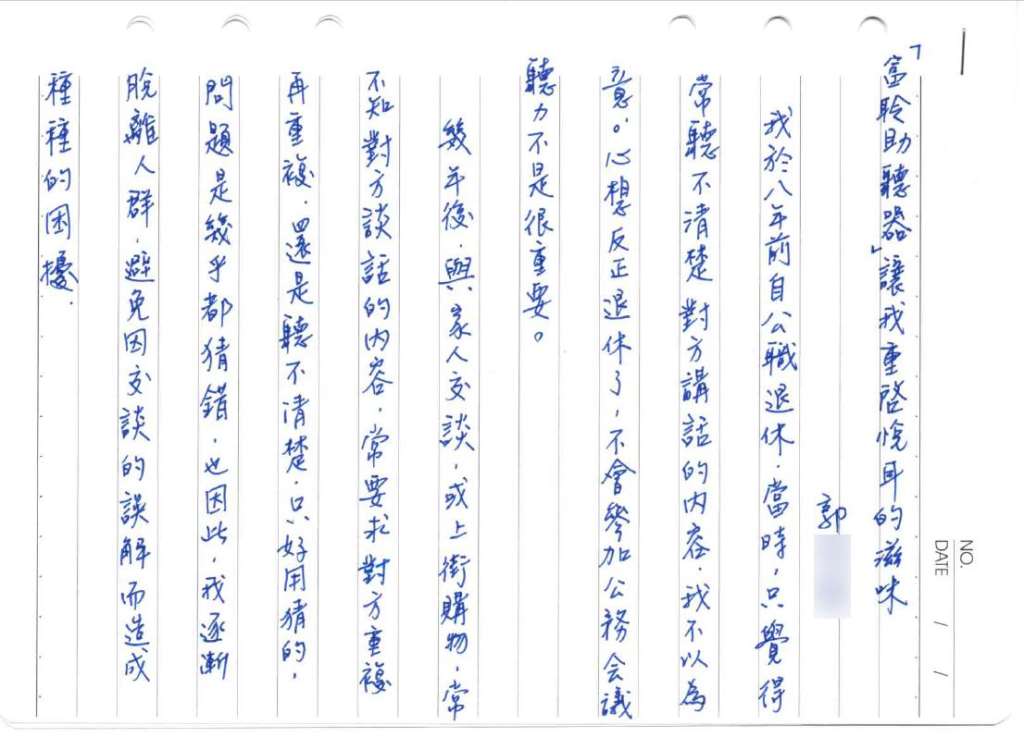 NO.
DATE / /
「富聆助聽器」讓我重啓悅耳的滋味
郭
我於八年前自公職退休,當時,只覺得
常聽不清楚對方講話的內容,我不以為
意。心想反正退休了,不會參加公務会議
聽力不是很重要。
幾年後,與家人交談,或上街購物,常
不知對方談話的內容,常要求對方重複
再重複,還是聽不清楚,只好用猜的,
問題是幾乎都猜錯,也因此,我逐漸
脫離人群,避免因交談的誤解而造成
種種的困擾.